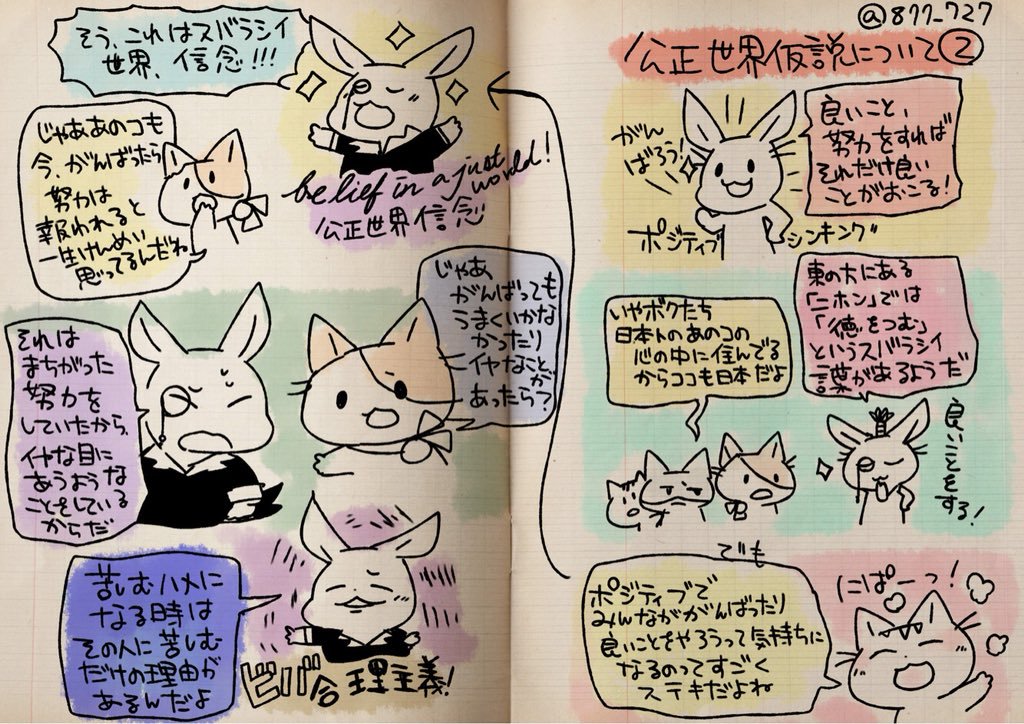 @877_727
公正世界仮説について②
良いこと、
努力をすれば
それだけ良い
ことがおこる!
がん
ばろう!
ポジティブ
シンキング
東の方にある
「ニホン」では
「徳をつむ」
というスバラシイ
言葉があるようだ
いやボクたち
日本人のあのコの
心の中に住んでる
からココも日本だよ
良いことをする!
でも
ポジティブで
みんながんばったり
良いことをやろうって気持ちに
なるのってすごく
ステキだよね
にぱーっ!
そう、これはスバラシイ
世界、信念!!!
belief in a just
world!
公正世界信念
じゃああのコも
今、がんばったら
努力は
報われると
一生けんめい
思ってるんだね
じゃあ、
がんばっても
うまくいかな
かったり
イヤなことが
あったら?
それは
まちがった
努力を
していたから、
イヤな目に
あうような
ことをしている
からだ
苦しむハメに
なる時は
その人に苦しむ
だけの理由が
あるんだよ
ビバ合理主義!